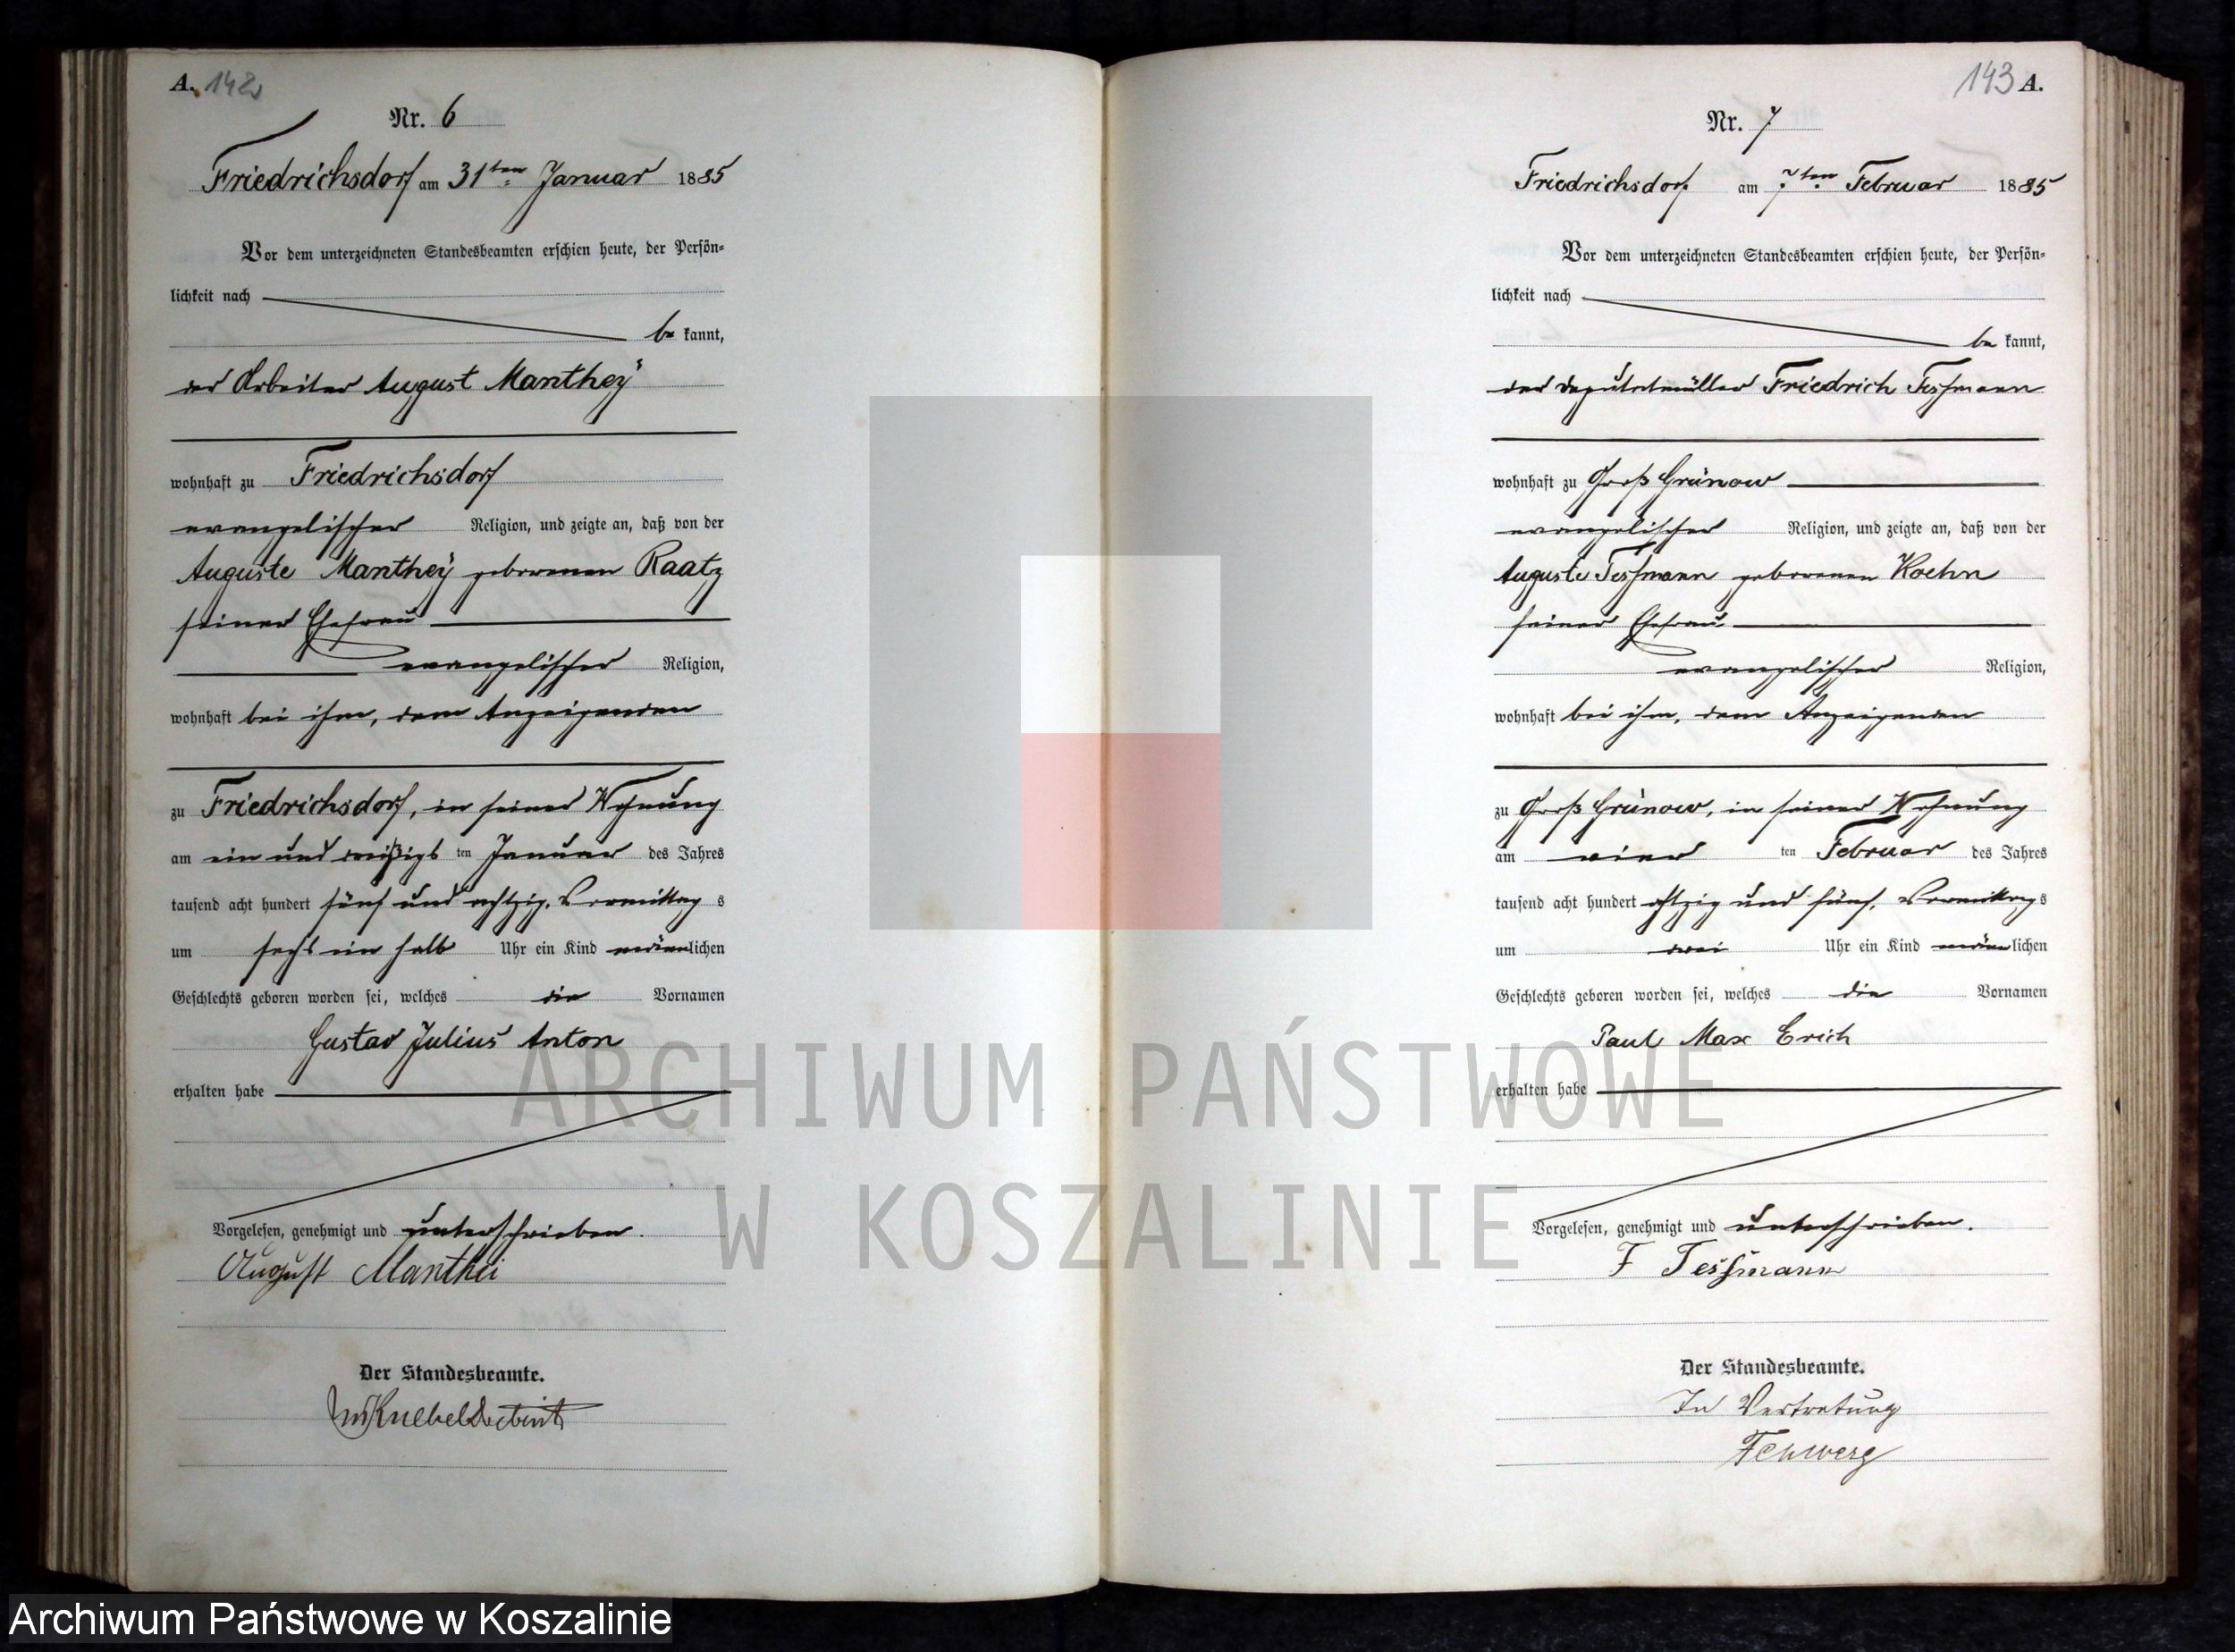 A. 142
Nr. 6
Friedrichsdorf am 31ten Januar 1885
Vor dem unterzeichneten Standesbeamten erschien heute, der Persön-
lichkeit nach
be kannt,
der Arbeiter August Manthey
wohnhaft zu Friedrichsdorf
evangelischer Religion, und zeigte an, daß von der
Auguste Manthey geborenen Raatz
seiner Ehefrau
evangelischer Religion,
wohnhaft bei ihm, dem Anzeigenden
zu Friedrichsdorf, in seiner Wohnung
am ein und dreißigs ten Januar des Jahres
tausend acht hundert fünf und achtzig, Vormittag s
um sechs ein halb Uhr ein Kind männlichen
Geschlechts geboren worden sei, welches die Vornamen
Gustav Julius Anton
erhalten habe
Vorgelesen, genehmigt und unterschrieben.
August Manthei
Der Standesbeamte.
143 A.
Nr. 7
Friedrichsdorf am 7ten Februar 1885
Vor dem unterzeichneten Standesbeamten erschien heute, der Persön-
lichkeit nach
be kannt,
der Deputatmüller Friedrich Tessmann
wohnhaft zu Groß Grünow
evangelischer Religion, und zeigte an, daß von der
Auguste Tessmann geborenen Koehn
seiner Ehefrau
evangelischer Religion,
wohnhaft bei ihm, dem Anzeigenden
zu Groß Grünow, in seiner Wohnung
am vier ten Februar des Jahres
tausend acht hundert achtzig und fünf, Vormittags
um drei Uhr ein Kind männlichen
Geschlechts geboren worden sei, welches die Vornamen
Paul Max Erich
erhalten habe
Vorgelesen, genehmigt und unterschrieben.
F Tessmann
Der Standesbeamte.
In Vertretung
ARCHIWUM PAŃSTWOWE
W KOSZALINIE
Archiwum Państwowe w Koszalinie